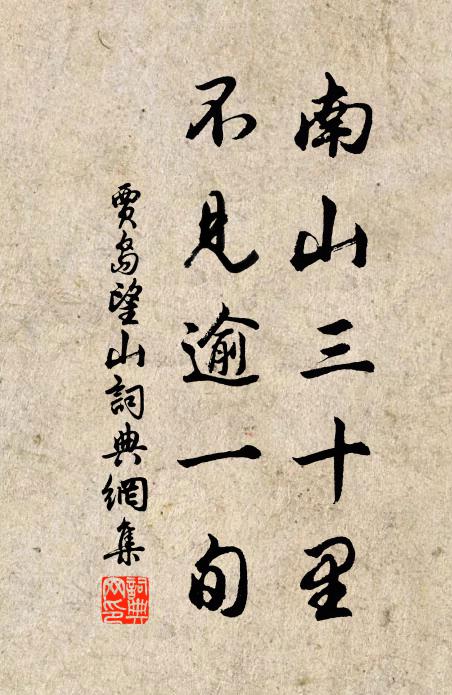 南山三十里
不見逾一旬
賈島望山詞典網集
詞典網印